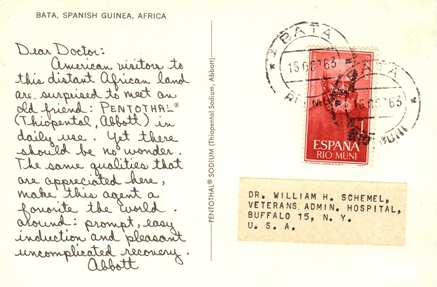 BATA, SPANISH GUINEA, AFRICA
Dear Doctor:
American visitors to
this distant African land
are surprised to meet an
old friend: PENTOTHAL®
(Thiopental, Abbott) in
daily use. Yet there
should be no wonder.
The same qualities that
are appreciated here,
make this agent a
favorite the world
around: prompt, easy
induction and pleasant
uncomplicated recovery.
Abbott
PENTOTHAL® SODIUM (Thiopental Sodium, Abbott)
BATA
16 OCT 63
RIO MUNI
BATA
16 OCT 63
RIO MUNI
1
ESPAÑA
RIO MUNI
DR. WILLIAM H. SCHEMEL,
VETERANS ADMIN. HOSPITAL,
BUFFALO 15, N. Y.
U. S. A.